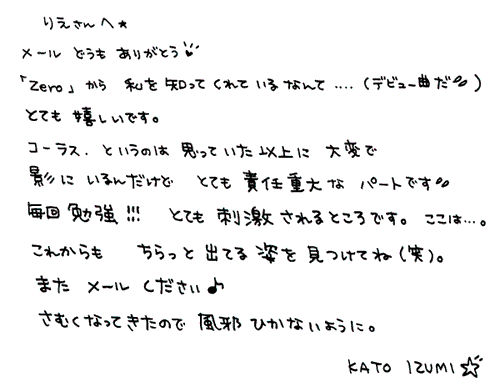 りえさんへ★
メール どうも ありがとう
「Zero」から 私を 知ってくれているなんて....(デビュー曲だ)
とても 嬉しいです。
コーラス. というのは 思っていた以上に 大変で
影に いるんだけど とても 責任重大な パートです
毎回 勉強!!! とても 刺激 されるところです。ここは...。
これからも ちらっと 出てる 姿を 見つけてね(笑)。
また メール ください♪
さむくなってきたので 風邪 ひかないように。
KATO IZUMI ☆